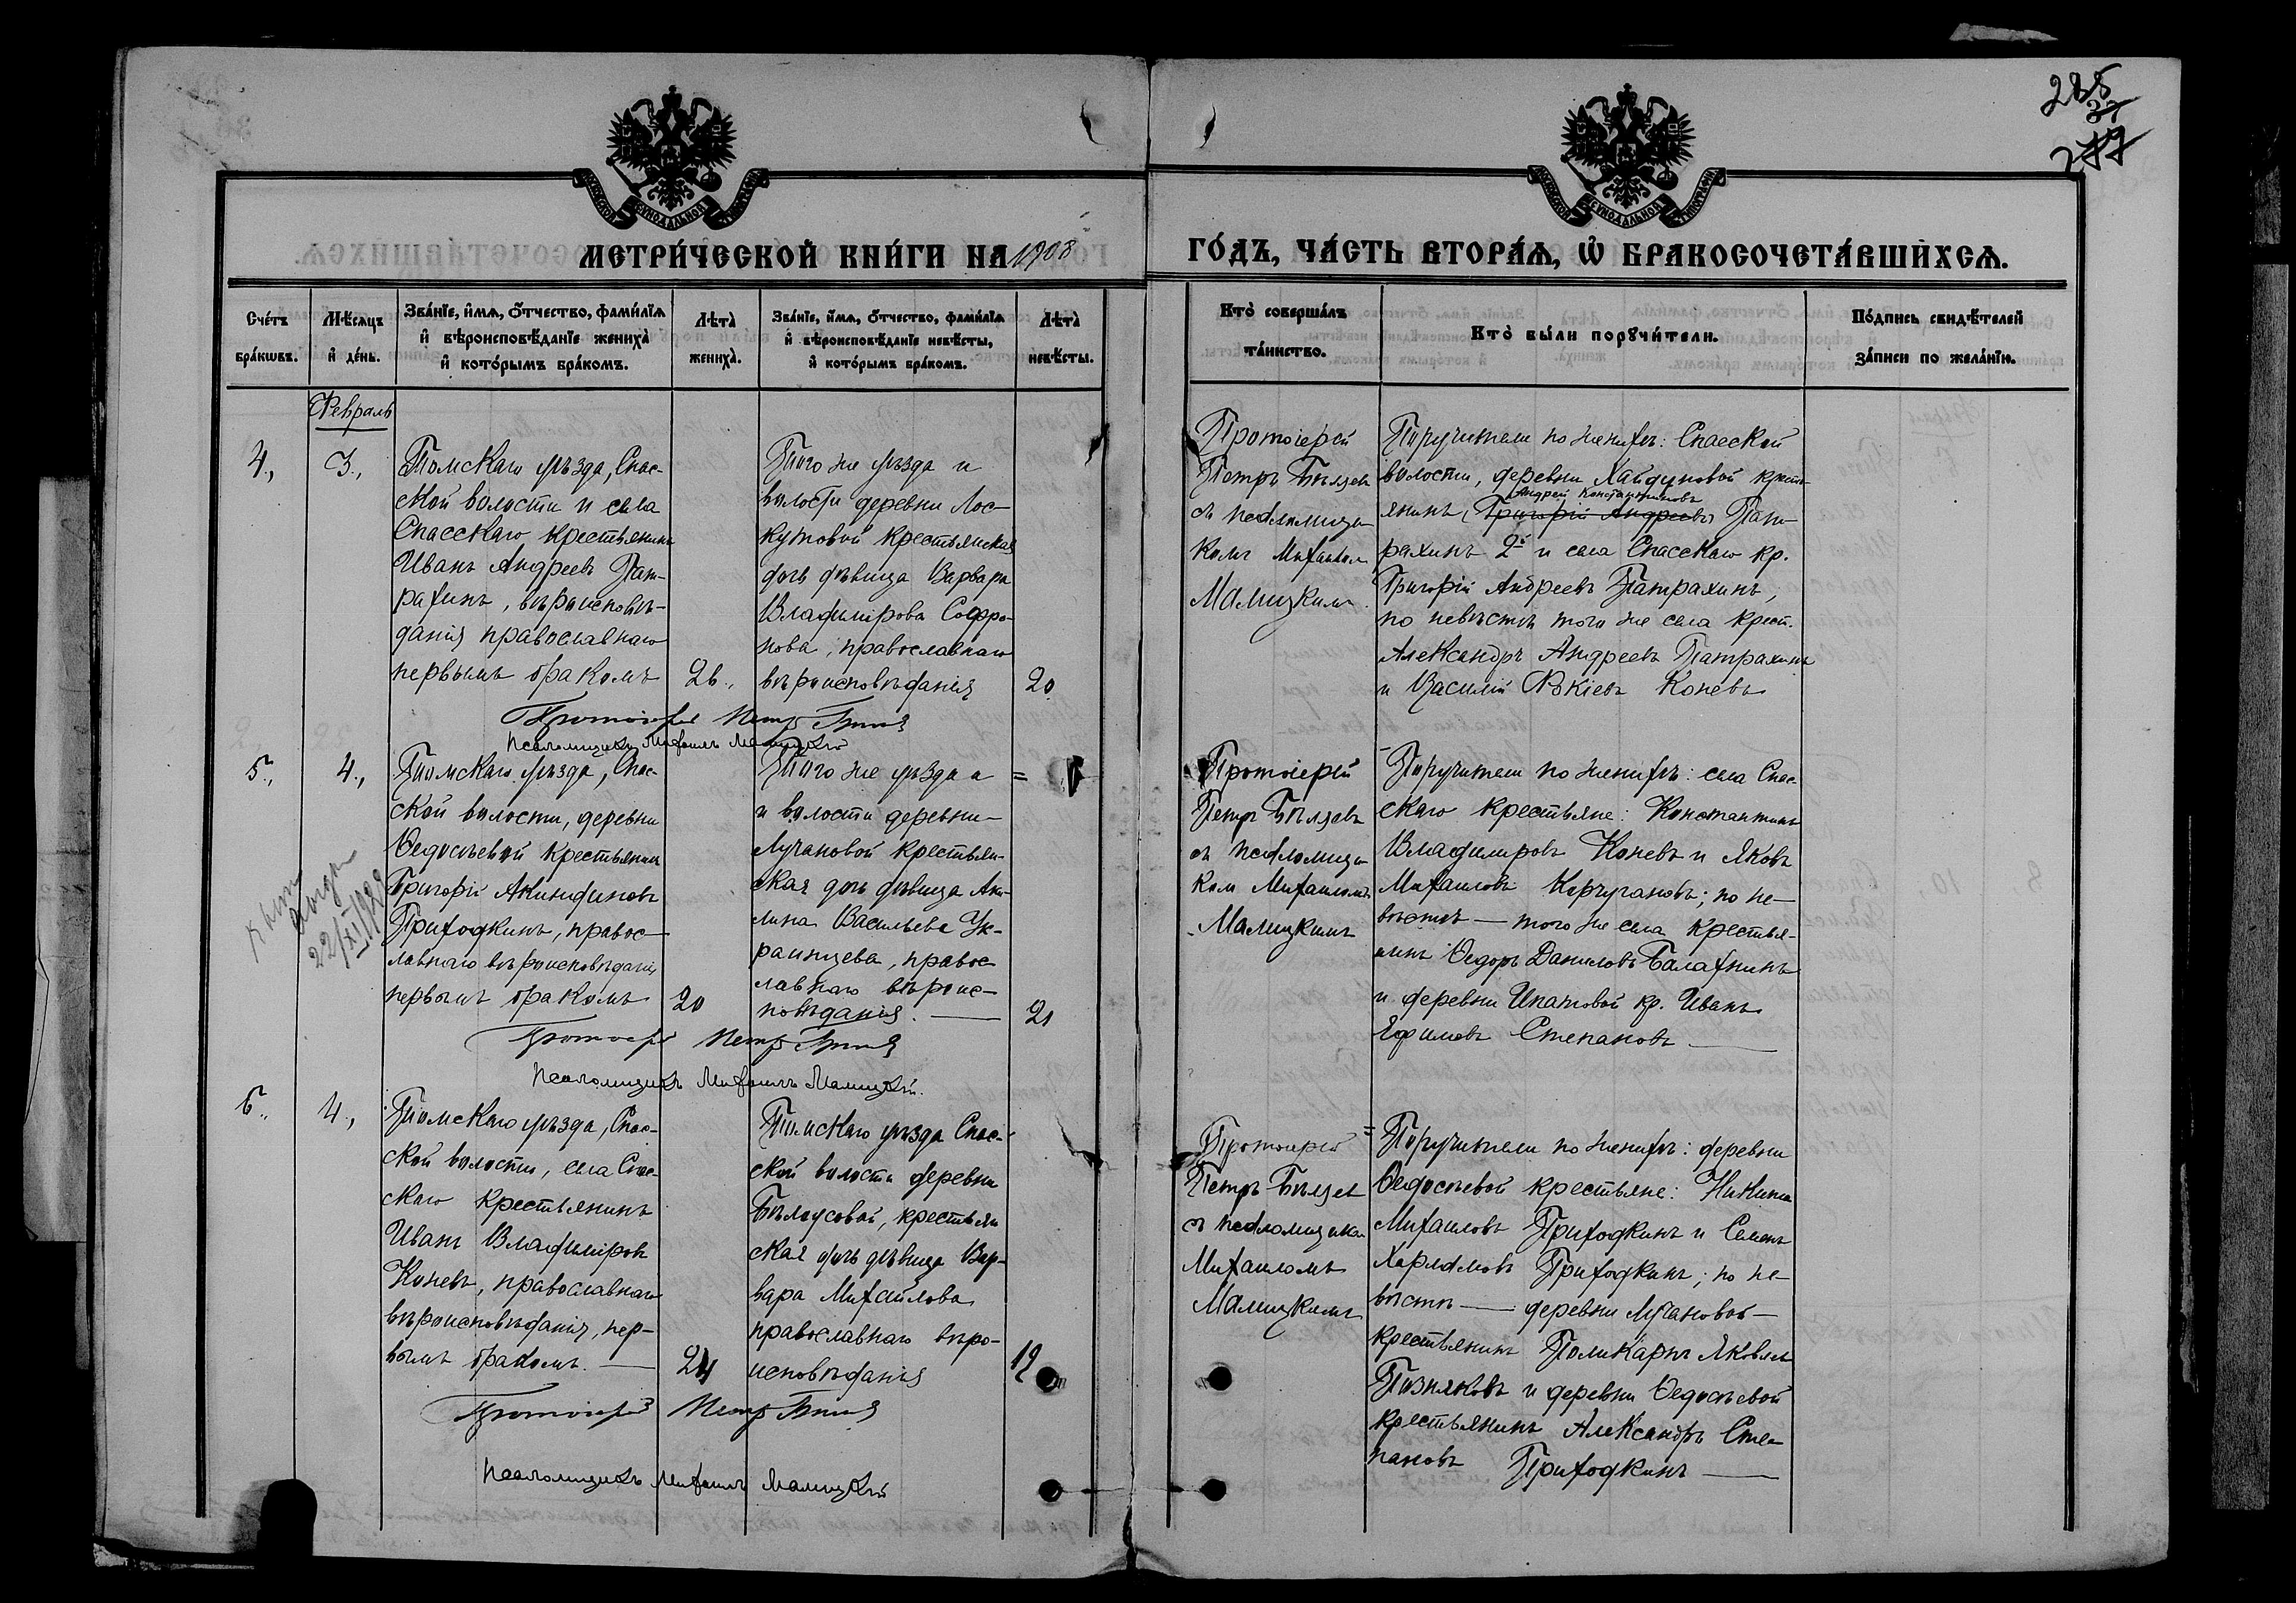 285
37
277
МЕТРИ́ЧЕСКОЙ КНИ́ГИ НА 1908
ГО́ДЪ, ЧА́СТЬ ВТОРА́Ѧ, Ѡ҆ БРАКОСОЧЕТА́ВШИХСѦ.
Сче́тъ бра́кѡвъ.
Мѣ́сѧцъ и҆ де́нь.
Зва́нїе, и҆́мѧ, ѻ҆́тчество, фами́лїѧ
и҆ вѣроисповѣ́данїе жениха̀
и҆ кото́рымъ бра́комъ.
Лѣта̀ жениха̀.
Зва́нїе, и҆́мѧ, ѻ҆́тчество, фами́лїѧ
и҆ вѣроисповѣ́данїе невѣ́сты,
и҆ кото́рымъ бра́комъ.
Лѣта̀ невѣ́сты.
Кто̀ соверша́лъ та́инство.
Кто̀ бы́ли порꙋчи́тели.
По́дпись свидѣ́телей
за́писи по жела́нїю.
Февраль
4.,
3.,
Томскаго уѣзда, Спас-
ской волости и села
Спасскаго крестьянинъ
Иванъ Андреевъ Пат-
рахинъ, вѣроисповѣ-
данія православнаго
первымъ бракомъ
26.,
Того же уѣзда и
волости деревни Лос-
кутовой крестьянская
дочь дѣвица Варвара
Владимірова Софро-
нова, православнаго
вѣроисповѣданія
20
Протоіерей
Петръ Бѣляевъ
съ псаломщи-
комъ Михаиломъ
Малицкимъ.
Поручители по женихѣ: Спасской
волости, деревни Хайдуковой крест-
Андрей Константиновъ
янинъ, Григорій Андреевъ Пат-
рахинъ 2й и села Спасскаго кр.
Григорій Андреевъ Патрахинъ,
по невѣстѣ того же села крест.
Александръ Андреевъ Патрахинъ
и Василій Фокіевъ Коневъ
Протоіерей Петръ Бѣляевъ
Псаломщикъ Михаилъ Малицкій
5.,
4.,
Томскаго уѣзда, Спас-
ской волости, деревни
Ѳедосѣевой крестьянинъ
Григорій Акиндиновъ
Приходкинъ, правос-
лавнаго вѣроисповѣданія
первымъ бракомъ
20
Того же уѣзда и
и волости деревни
Лучановой крестьян-
ская дочь дѣвица Аку-
лина Васильева Ук-
раинцева, правос-
лавнаго вѣроис-
повѣданія.
21
22/XI 1929
Протоіерей
Петръ Бѣляевъ
съ псаломщи-
комъ Михаиломъ
Малицкимъ
Поручители по женихѣ: села Спас-
скаго крестьяне: Константинъ
Владиміровъ Коневъ и Яковъ
Михаиловъ Корчугановъ; по не-
вѣстѣ — того же села крестья-
нинъ Ѳедоръ Даниловъ Балахнинъ
и деревни Ипатовой кр. Иванъ
Ефимовъ Степановъ
Протоіерей Петръ Бѣляевъ
Псаломщикъ Михаилъ Малицкій.
6.,
4.,
Томскаго уѣзда, Спас-
ской волости, села Спас-
скаго крестьянинъ
Иванъ Владиміровъ
Коневъ, православнаго
вѣроисповѣданія, пер-
вымъ бракомъ.
24
Томскаго уѣзда Спас-
ской волости деревни
Бѣлоусовой, крестьян
ская дочь дѣвица Вар-
вара Михайлова
православнаго вѣро-
исповѣданія
19
Протоіерей
Петръ Бѣляевъ
съ псаломщикомъ
Михаиломъ
Малицкимъ
Поручители по женихѣ: деревни
Ѳедосѣевой крестьяне: Никита
Михаиловъ Приходкинъ и Семенъ
Харламовъ Приходкинъ; по не-
вѣстѣ — деревни Лучановой —
крестьянинъ Поликарпъ Яковлевъ
Позняковъ и деревни Ѳедосѣевой
крестьянинъ Александръ Сте-
пановъ Приходкинъ
Протоіерей Петръ Бѣляевъ
Псаломщикъ Михаилъ Малицкій